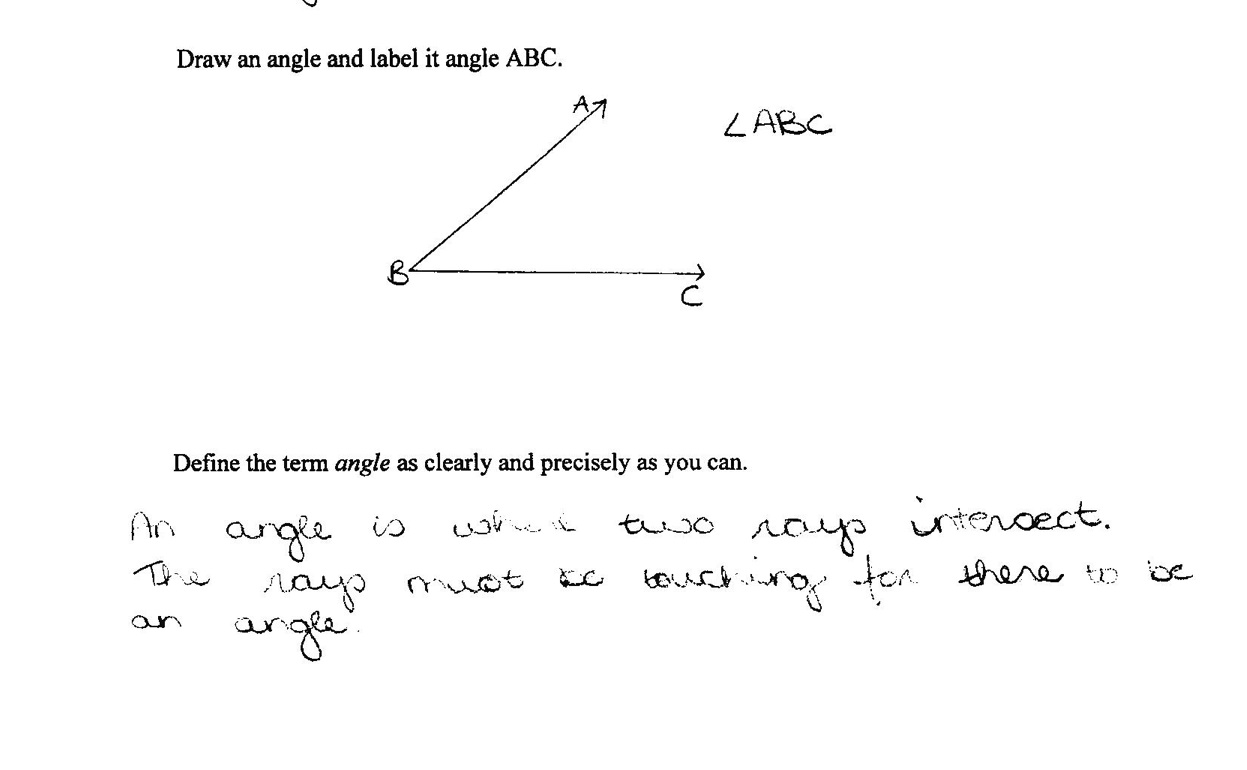 Draw an angle and label it angle ABC.
A
∠ABC
B
C
Define the term angle as clearly and precisely as you can.
An angle is two rays intersect.
The rays must be touching for there to be
an angle.